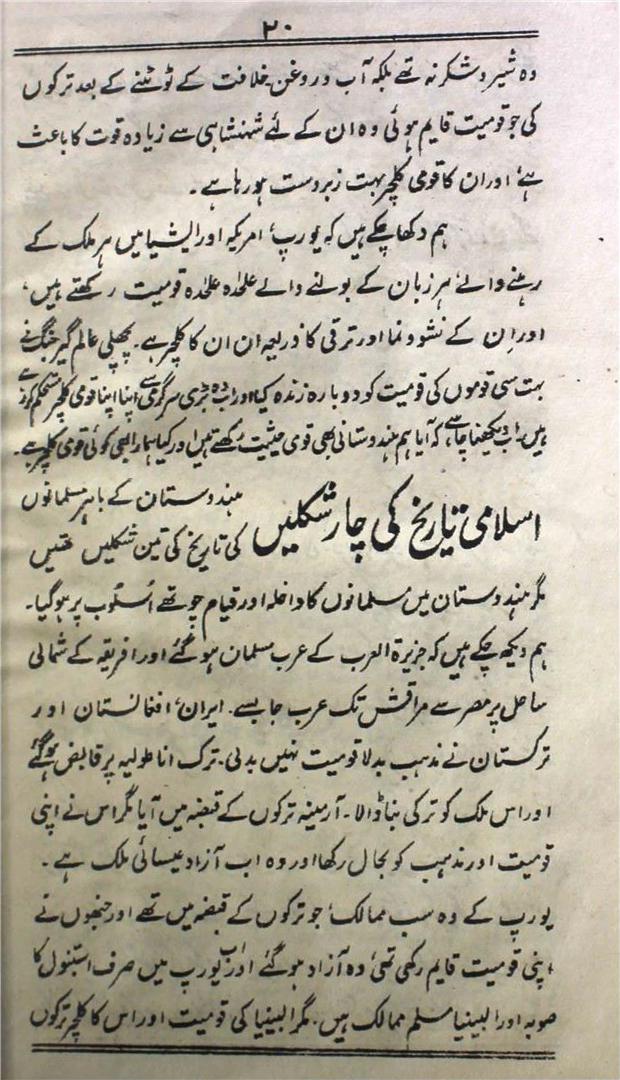 ۲۰
وہ شیر و شکر نہ تھے بلکہ آب و روغن۔ خلافت کے ٹوٹنے کے بعد ترکوں
کی جو قومیت قایم ہوئی وہ ان کے لئے شہنشاہی سے زیادہ قوت کا باعث
ہے، اور ان کا قومی کلچر بہت زبردست ہو رہا ہے۔
ہم دکھا چکے ہیں کہ یورپ، امریکہ اور ایشیا میں ہر ملک کے
رہنے والے، ہر زبان کے بولنے والے علحٰدہ علحٰدہ قومیت رکھتے ہیں،
اور ان کے نشو و نما اور ترقی کا ذریعہ ان ان کا کلچر ہے۔ پچھلی عالم گیر جنگ نے
بہت سی قوموں کی قومیت کو دوبارہ زندہ کیا اور اب وہ بڑی سرگرمی سے اپنا اپنا قومی کلچر مستحکم کر رہے
ہیں۔ اب دیکھنا چاہئے کہ آیا ہم ہندوستانی بھی قومی حیثیت رکھتے ہیں اور کیا ہمارا بھی کوئی قومی کلچر ہے۔
اسلامی تاریخ کی چار شکلیں
ہندوستان کے باہر مسلمانوں
کی تاریخ کی تین شکلیں تھیں
مگر ہندوستان میں مسلمانوں کا داخلہ اور قیام چوتھے اسلوب پر ہو گیا۔
ہم دیکھ چکے ہیں کہ جزیرۃ العرب کے عرب مسلمان ہو گئے اور افریقہ کے شمالی
ساحل پر مصر سے مراقش تک عرب جا بسے۔ ایران، افغانستان اور
ترکستان نے مذہب بدلا قومیت نہیں بدلی۔ ترک اناطولیہ پر قابض ہو گئے
اور اس ملک کو ترکی بنا ڈالا۔ آرمینہ ترکوں کے قبضہ میں آیا مگر اس نے اپنی
قومیت اور مذہب کو بحال رکھا اور وہ اب آزاد عیسائی ملک ہے۔
یورپ کے وہ سب ممالک، جو ترکوں کے قبضہ میں تھے اور جنھوں نے
اپنی قومیت قایم رکھی تھی، وہ آزاد ہو گئے اور اب یورپ میں صرف استنبول کا
صوبہ اور البینیا مسلم ممالک ہیں۔ مگر البینیا کی قومیت اور اس کا کلچر ترکوں